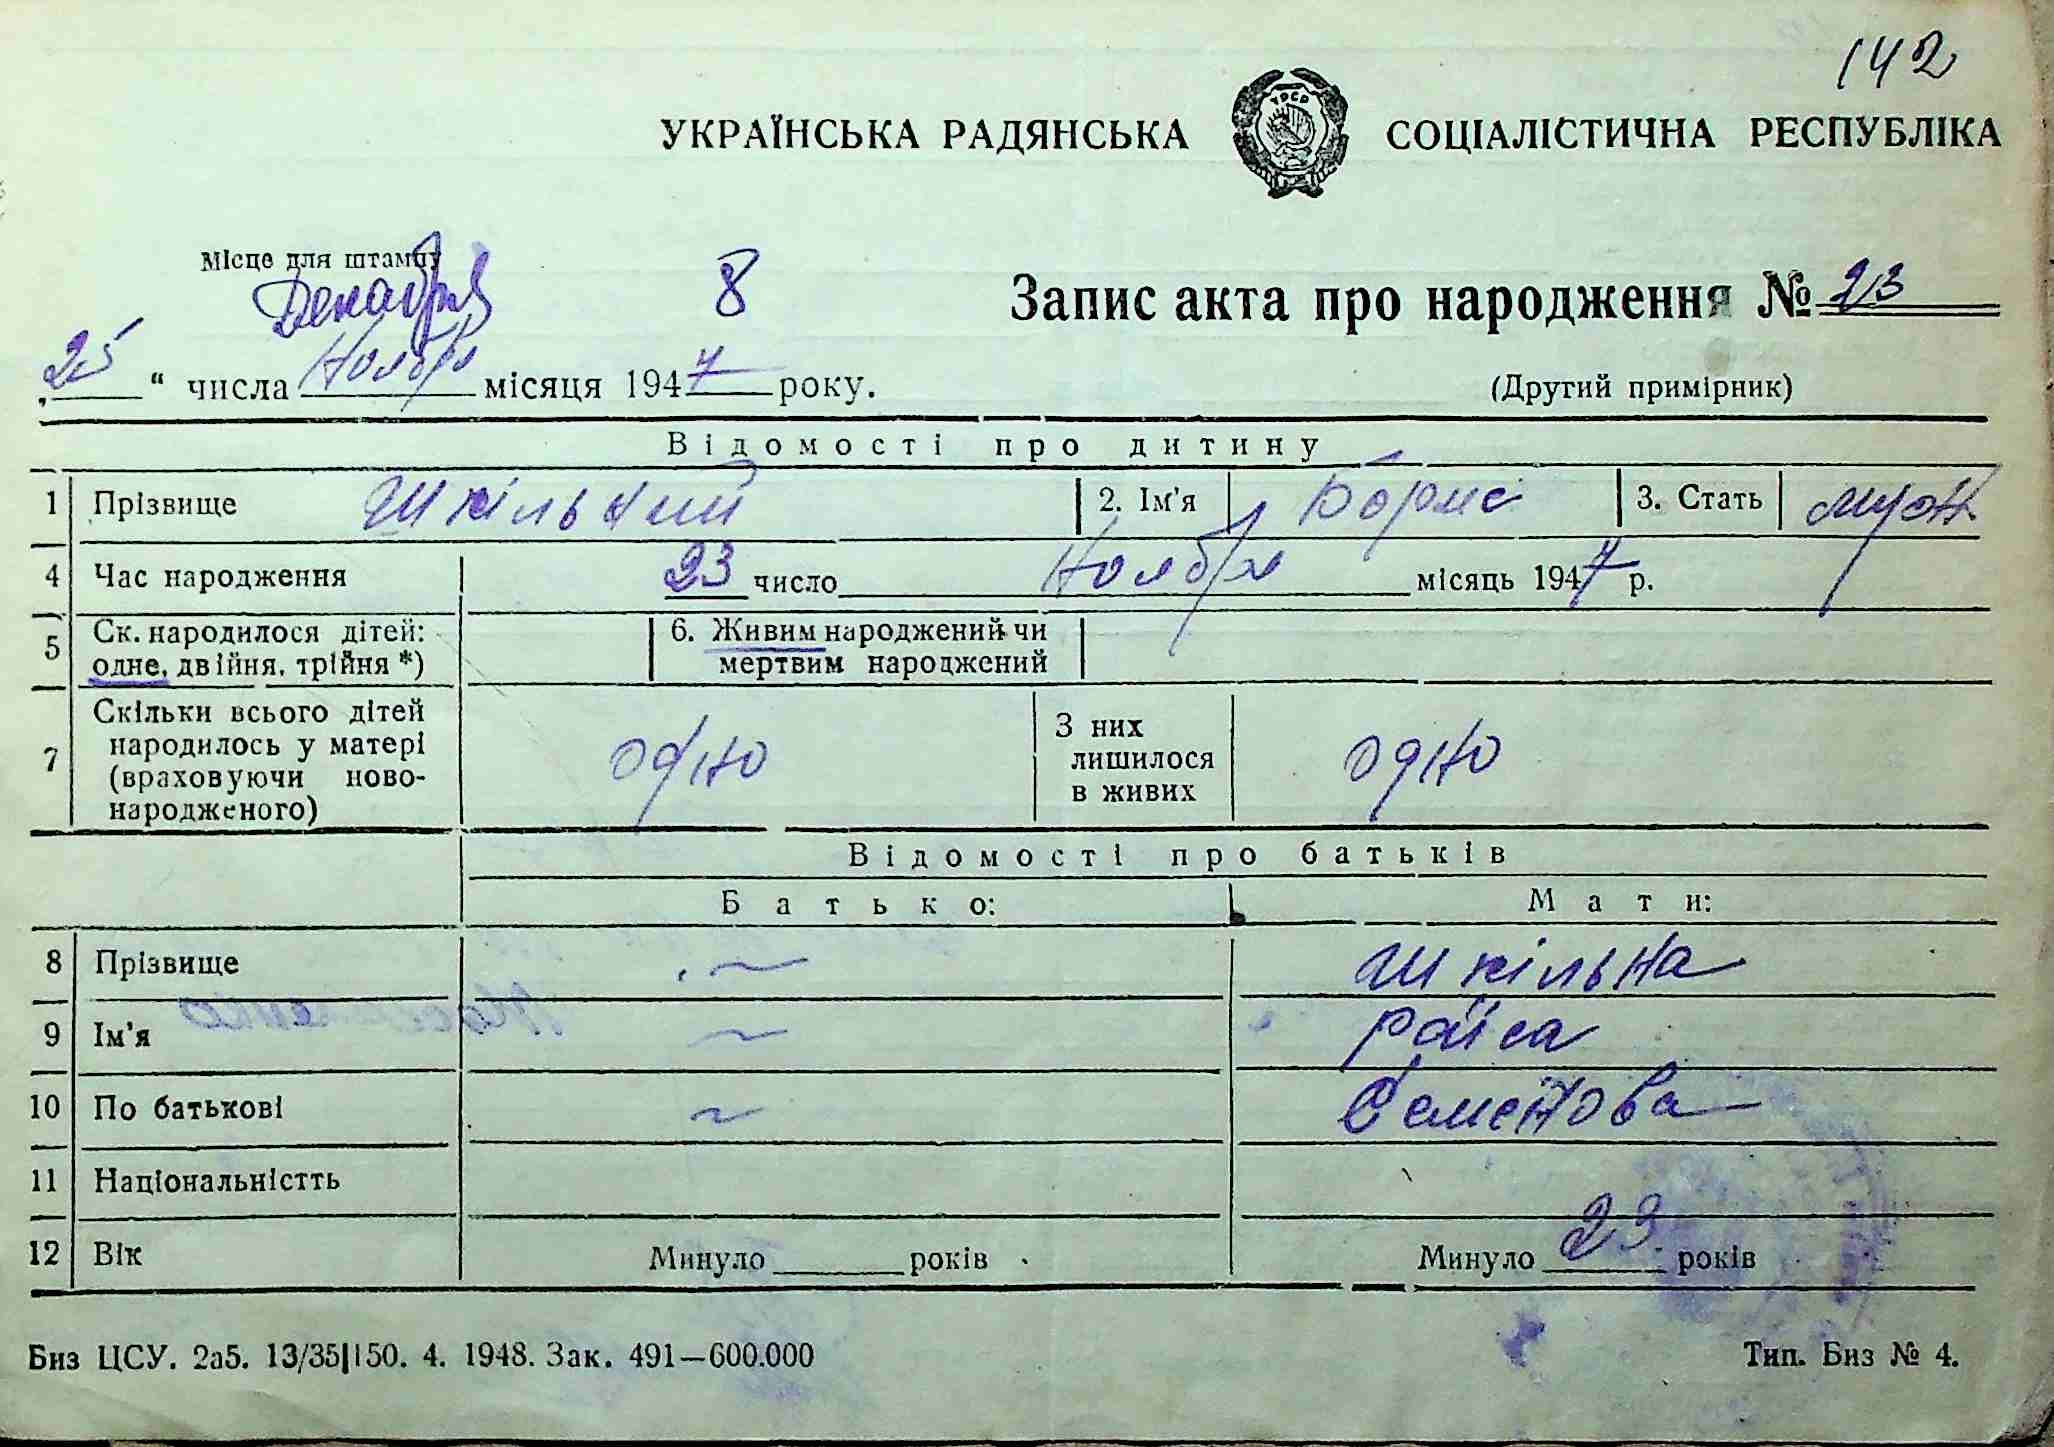 142
УКРАЇНСЬКА РАДЯНСЬКА СОЦІАЛІСТИЧНА РЕСПУБЛІКА
УРСР
Місце для штампу
Декабря 8
Запис акта про народження № 23
„25“ числа Ноября місяця 1947 року.
(Другий примірник)
Відомості про дитину
1 Прізвище Шкільний 2. Ім'я Борис 3. Стать муж
4 Час народження 23 число Ноября місяць 1947 р.
5 Ск. народилося дітей: одне, двійня, трійня *) 6. Живим народжений чи мертвим народжений
7 Скільки всього дітей народилось у матері (враховуючи ново-народженого) одно З них лишилося в живих одно
Відомості про батьків
Батько: Мати:
8 Прізвище ~ Шкільна
9 Ім'я ~ Раїса
10 По батькові ~ Семенова
11 Національністть
12 Вік Минуло ____ років Минуло 23 років
Биз ЦСУ. 2а5. 13/35|150. 4. 1948. Зак. 491—600.000 Тип. Биз № 4.